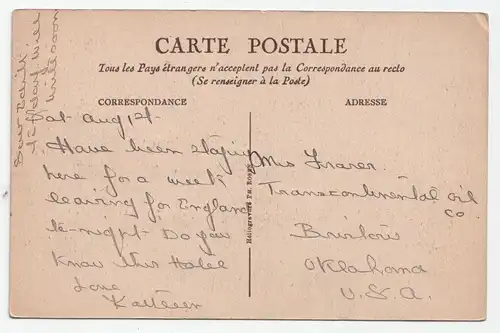 CARTE POSTALE
Tous les Pays étrangers n'acceptent pas la Correspondance au recto
(Se renseigner à la Poste)
CORRESPONDANCE
Sat. Aug 12th.
Have been staying
here for a week
leaving for England
to-night. Do you
know this Hotel
Love
ADRESSE
Transcontinental Oil
Co
Bristow
Oklahoma
U.S.A.